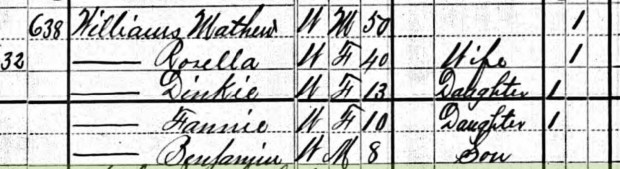 638 Williams Mathew W M 50 1
32 —— Rosella W F 40 Wife 1
—— Dinkie W F 13 Daughter 1
—— Fannie W F 10 Daughter 1
—— Benjamin W M 8 Son